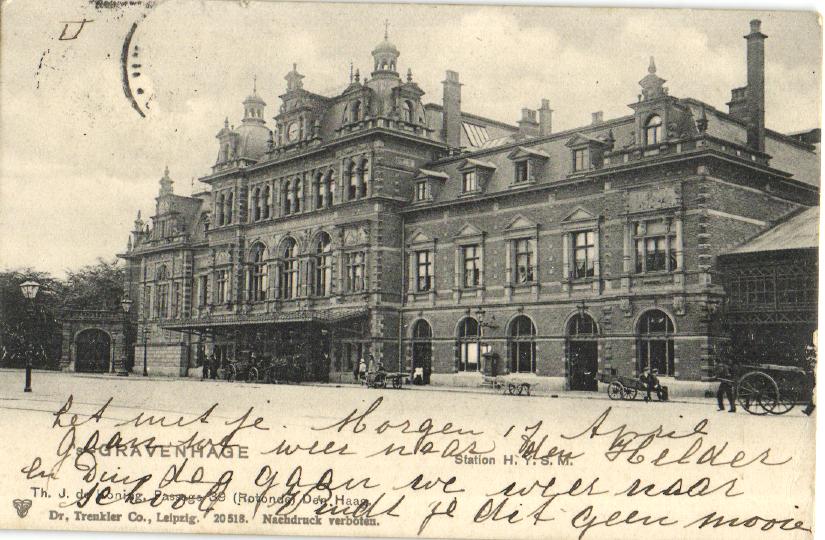 II
het met je. Morgen 17 April
gaan we weer naar den Helder
'S-GRAVENHAGE
Station H. Y. S. M.
en Dinsdag gaan we weer naar
Th. J. de Koning, Passage 39 (Rotonde) Den Haag.
school. Vindt je dit geen mooie
Dr. Trenkler Co., Leipzig. 20518. Nachdruck verboten.